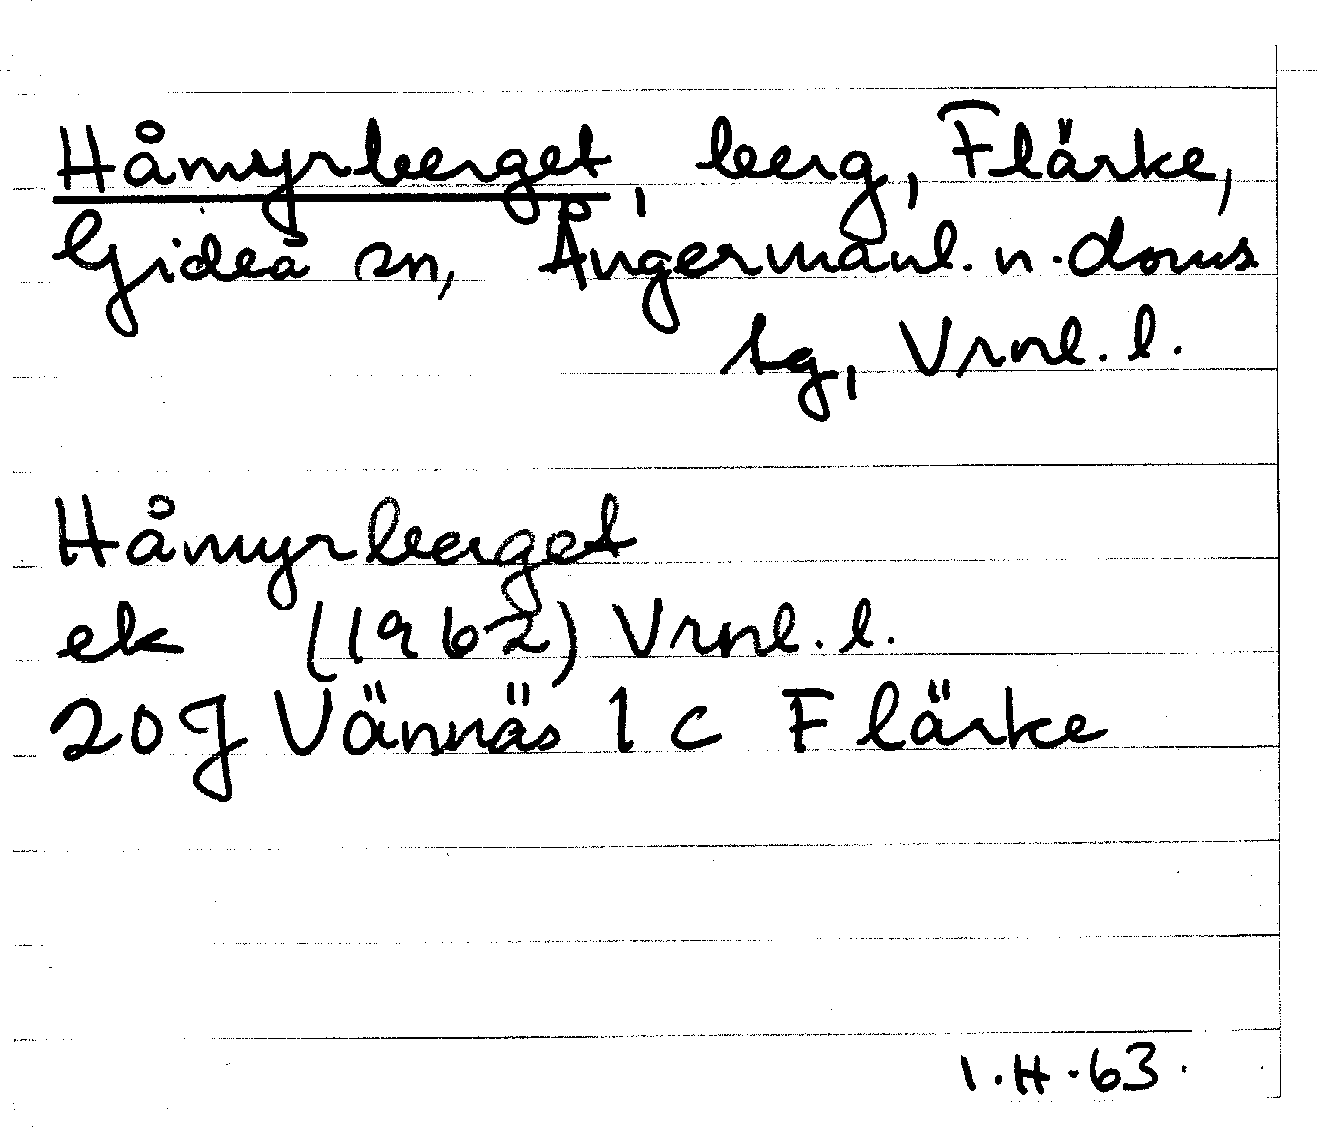 Håmyrberget, berg, Flärke,
Gideå sn, Ångermanl. n. doms
tg, Vrnl. l.
Håmyrberget
ek (1962) Vrnl. l.
20J Vännäs 1 c Flärke
I.H.63.